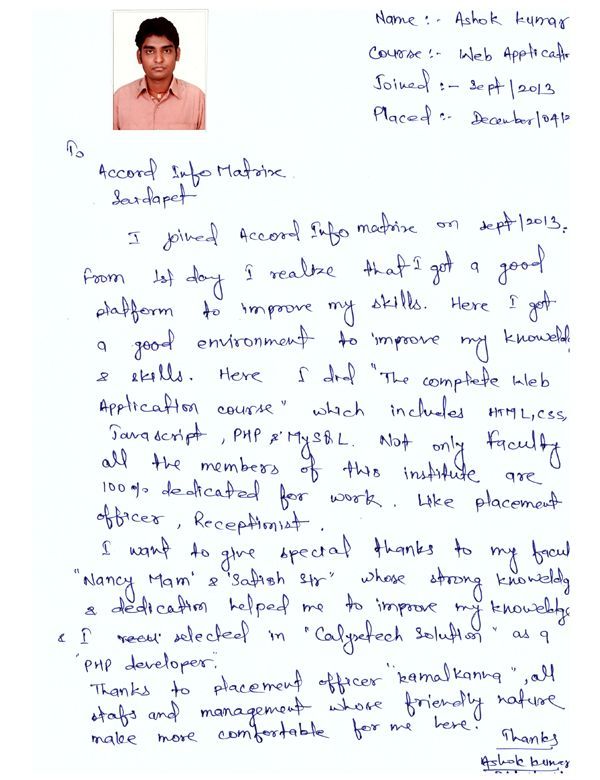 Name :- Ashok kumar
Course :- Web Applicatio
Joined :- Sept/2013
Placed :- December/04/2
To
Accord Info Matrix
Saidapet
I joined Accord Info matrix on sept/2013.
From 1st day I realize that I got a good
platform to improve my skills. Here I got
a good environment to improve my knoweldg
& skills. Here I did "The complete Web
Application course" which includes HTML, CSS,
Javascript, PHP & MySQL. Not only faculty
all the members of this institute are
100% dedicated for work. Like placement
officer, Receptionist.
I want to give special thanks to my facul
"Nancy Mam' & 'Satish Sir" whose strong knoweldg
& dedication helped me to improve my knoweldge
& I selected in "Calysetech Solution" as a
"PHP developer".
Thanks to placement officer "kamalkanna", all
stafs and management whose friendly nature
make more comfortable for me here.
Thanks
Ashok kumar